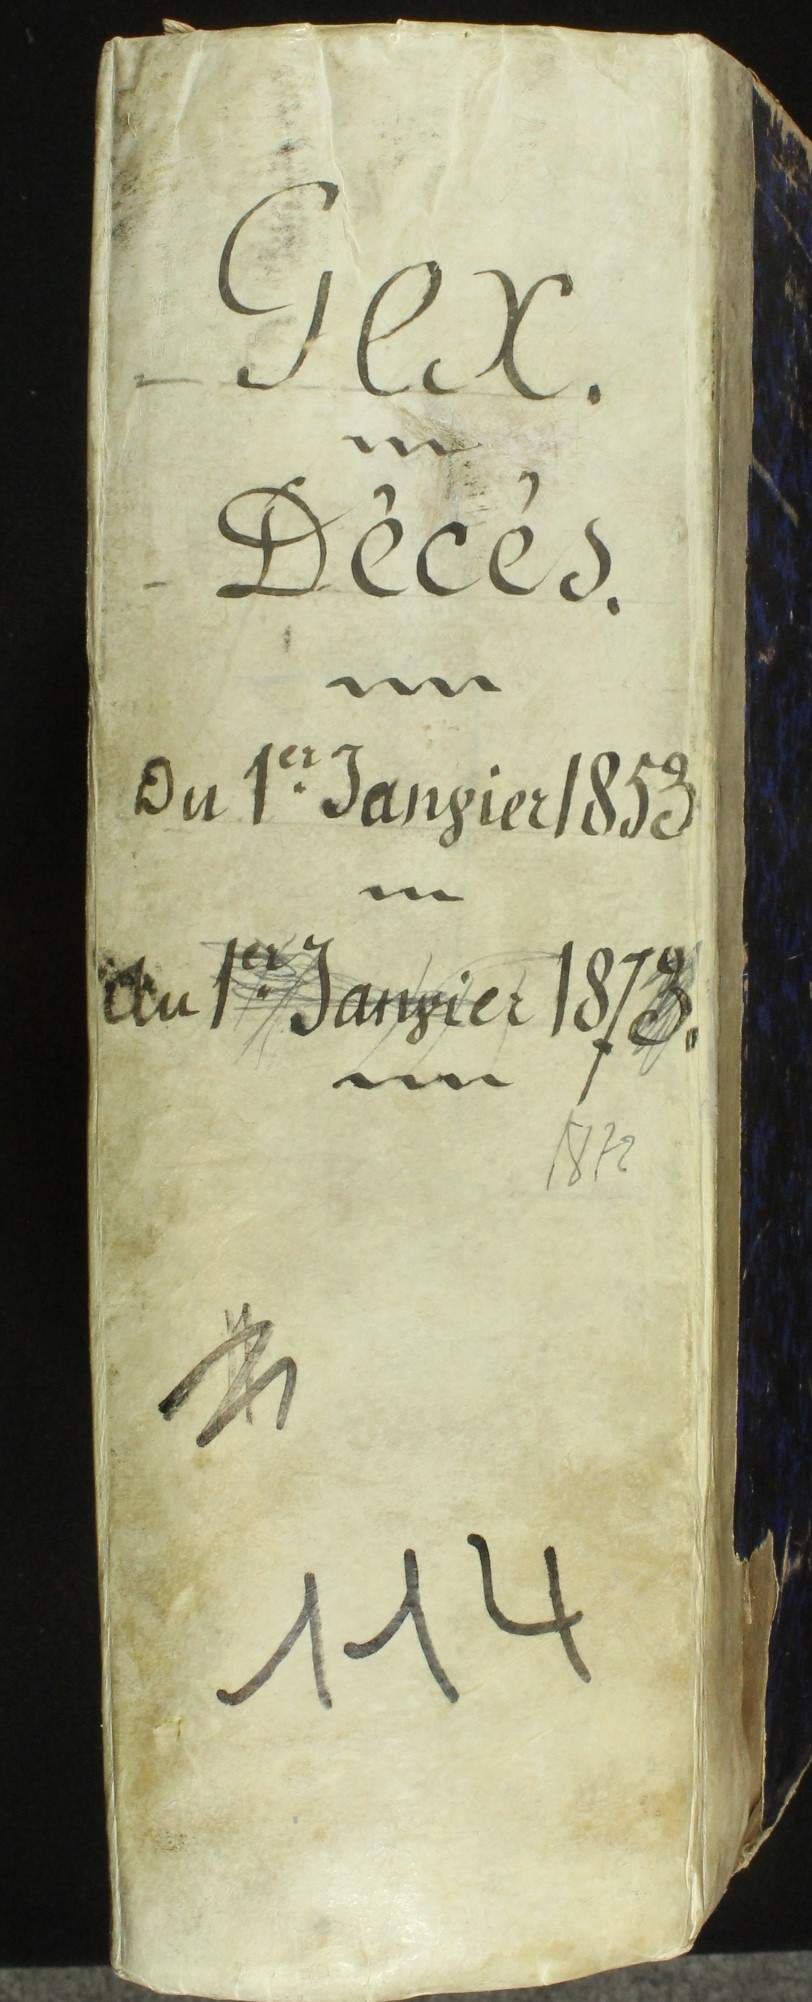 Gex.
Décés.
Du 1er Janvier 1853
au 1er Janvier 1873.
1872
114